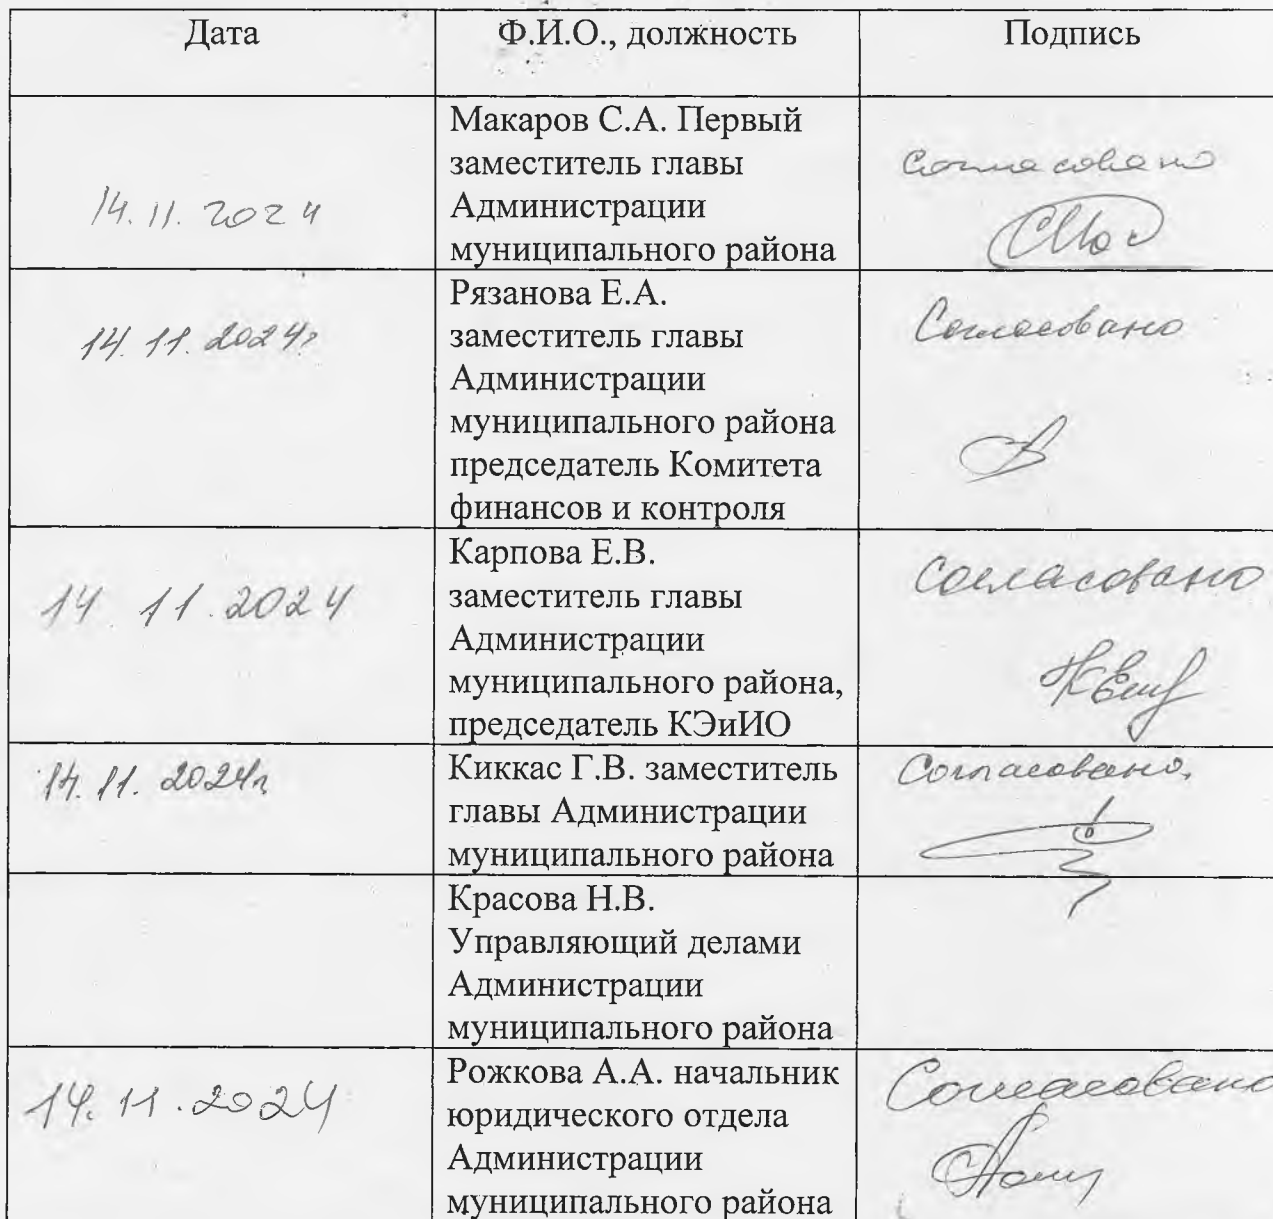 Дата Ф.И.О., должность Подпись
Макаров С.А. Первый
заместитель главы
Администрации
муниципального района
14.11.2024
Согласовано
Рязанова Е.А.
заместитель главы
Администрации
муниципального района
председатель Комитета
финансов и контроля
14.11.2024г
Согласовано
Карпова Е.В.
заместитель главы
Администрации
муниципального района,
председатель КЭиИО
14.11.2024
Согласовано
Киккас Г.В. заместитель
главы Администрации
муниципального района
14.11.2024г
Согласовано.
Красова Н.В.
Управляющий делами
Администрации
муниципального района
Рожкова А.А. начальник
юридического отдела
Администрации
муниципального района
14.11.2024
Согласовано